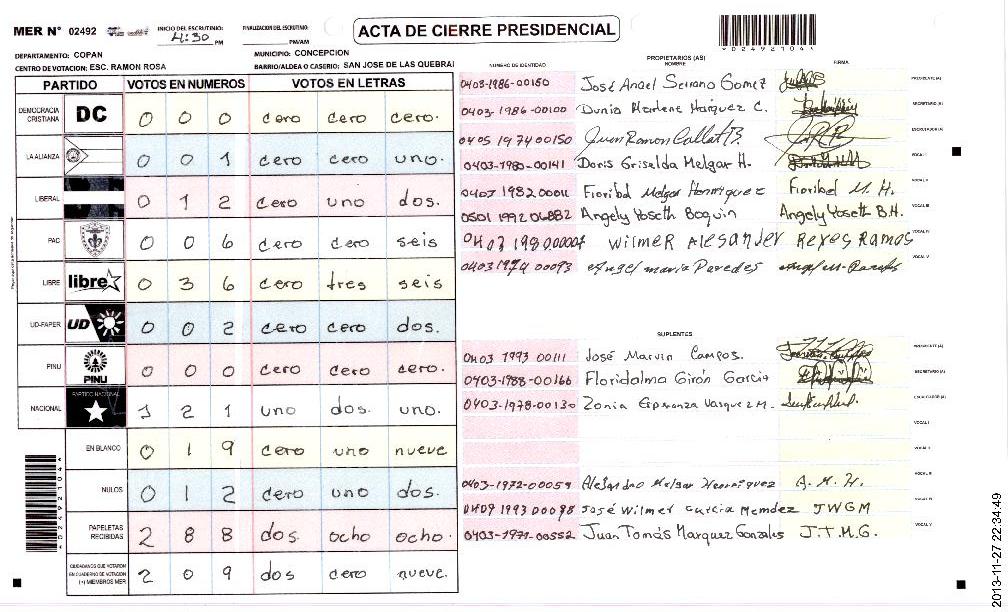 MER N° 02492
INICIO DEL ESCRUTINIO: 4:30 PM
FINALIZACION DEL ESCRUTINIO: PM/AM
ACTA DE CIERRE PRESIDENCIAL
*02492104*
DEPARTAMENTO: COPAN
MUNICIPIO: CONCEPCION
CENTRO DE VOTACION: ESC. RAMON ROSA
BARRIO/ALDEA O CASERIO: SAN JOSE DE LAS QUEBRA
PARTIDO VOTOS EN NUMEROS VOTOS EN LETRAS
DEMOCRACIA CRISTIANA DC 0 0 0 cero cero cero.
LA ALIANZA 0 0 1 cero cero uno.
LIBERAL 0 1 2 cero uno dos.
PAC 0 0 6 cero cero seis
LIBRE libre 0 3 6 cero tres seis
UD-FAPER UD 0 0 2 cero cero dos.
PINU PINU 0 0 0 cero cero cero.
NACIONAL PARTIDO NACIONAL 1 2 1 uno dos. uno.
EN BLANCO 0 1 9 cero uno nueve
NULOS 0 1 2 cero uno dos.
PAPELETAS RECIBIDAS 2 8 8 dos ocho ocho.
CIUDADANOS QUE VOTARON EN CUADERNO DE VOTACION (+) MIEMBROS MER 2 0 9 dos cero nueve.
*02492104*
PROPIETARIOS (AS)
NUMERO DE IDENTIDAD NOMBRE FIRMA
0403-1986-00150 José Angel Serrano Gomez PRESIDENTE (A)
0403-1986-00100 Dunia Marlene Márquez C. SECRETARIO (A)
0405 1974 00150 Juan Ramon Collat B. ESCRUTADOR (A)
0403-1980-00141 Doris Griselda Melgar H. VOCAL I
0407 1982 00011 Fioribel Melgar Henriquez Fioribel M. H. VOCAL II
0501 1992 06882 Angely Yoseth Boquin Angely Yoseth B.H. VOCAL III
Wilmer Alesander Reyes Ramos VOCAL IV
0403 1974 00093 Angel maria Paredes VOCAL V
SUPLENTES
0403 1993 00111 José Marvin Campos. PRESIDENTE (A)
0403-1988-00166 Floridalma Girón Garcia SECRETARIO (A)
0403-1978-00130 Zonia Esperanza Vasquez M. ESCRUTADOR (A)
VOCAL I
VOCAL II
0403-1972-00059 Alejandro Melgar Henrriquez A. M. H. VOCAL III
0409 1993 00098 José Wilmer Garcia Memdez JWGM VOCAL IV
0403-1971-00552 Juan Tomás Marquez Gonzales J.T.M.G. VOCAL V
2013-11-27 22:34:49